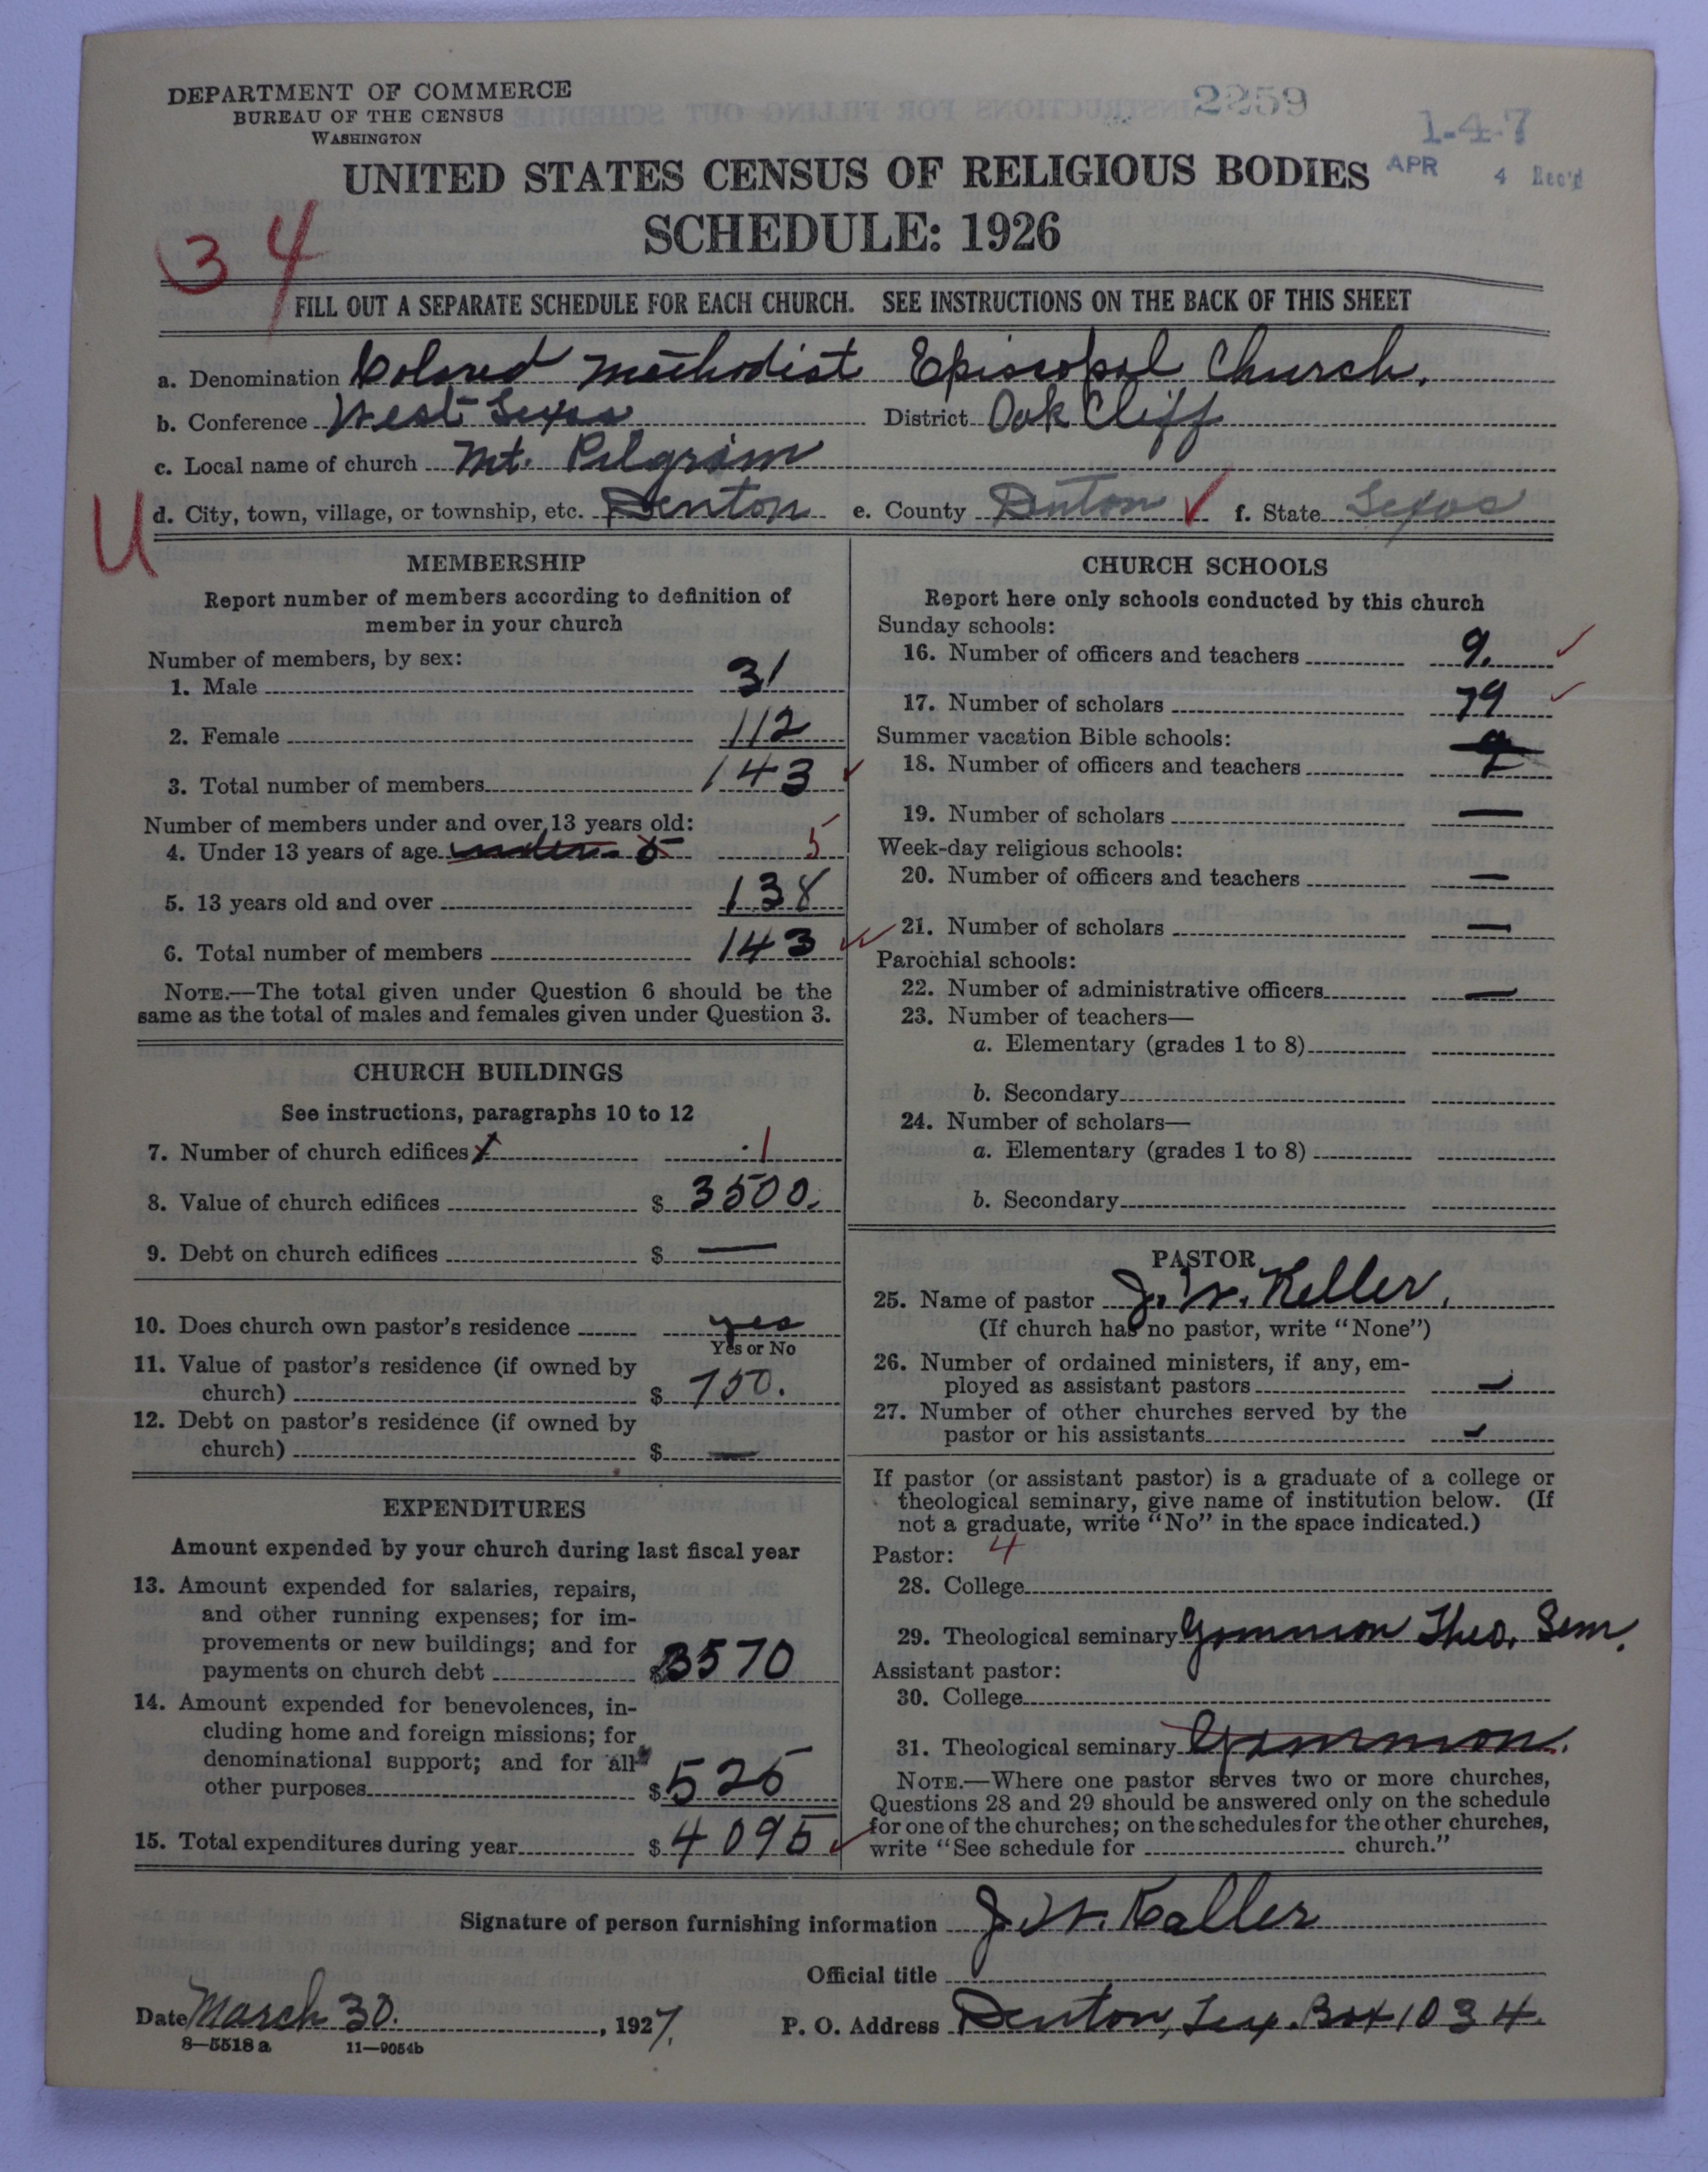 DEPARTMENT OF COMMERCE
BUREAU OF THE CENSUS
WASHINGTON
2259
1-4-7
APR 4 Rec'd
UNITED STATES CENSUS OF RELIGIOUS BODIES
SCHEDULE: 1926
34
FILL OUT A SEPARATE SCHEDULE FOR EACH CHURCH. SEE INSTRUCTIONS ON THE BACK OF THIS SHEET
a. Denomination Colored Methodist Episcopal Church.
b. Conference West Texas District Oak Cliff
c. Local name of church Mt. Pilgrim
U
d. City, town, village, or township, etc. Denton e. County Denton ✓ f. State Texas
MEMBERSHIP
Report number of members according to definition of
member in your church
Number of members, by sex:
1. Male 31
2. Female 112
3. Total number of members 143 ✓
Number of members under and over 13 years old:
4. Under 13 years of age under 5 5
5. 13 years old and over 138
6. Total number of members 143 ✓
NOTE.—The total given under Question 6 should be the
same as the total of males and females given under Question 3.
CHURCH BUILDINGS
See instructions, paragraphs 10 to 12
7. Number of church edifices x 1
8. Value of church edifices $ 3500.
9. Debt on church edifices $ —
10. Does church own pastor's residence yes
Yes or No
11. Value of pastor's residence (if owned by
church) $ 750.
12. Debt on pastor's residence (if owned by
church) $ —
EXPENDITURES
Amount expended by your church during last fiscal year
13. Amount expended for salaries, repairs,
and other running expenses; for im-
provements or new buildings; and for
payments on church debt $3570
14. Amount expended for benevolences, in-
cluding home and foreign missions; for
denominational support; and for all
other purposes $525
15. Total expenditures during year $4095 ✓
CHURCH SCHOOLS
Report here only schools conducted by this church
Sunday schools:
16. Number of officers and teachers 9. ✓
17. Number of scholars 79 ✓
Summer vacation Bible schools:
18. Number of officers and teachers 9
19. Number of scholars —
Week-day religious schools:
20. Number of officers and teachers —
21. Number of scholars —
Parochial schools:
22. Number of administrative officers —
23. Number of teachers—
a. Elementary (grades 1 to 8)
b. Secondary
24. Number of scholars—
a. Elementary (grades 1 to 8)
b. Secondary
PASTOR
25. Name of pastor J. W. Keller.
(If church has no pastor, write "None")
26. Number of ordained ministers, if any, em-
ployed as assistant pastors —
27. Number of other churches served by the
pastor or his assistants —
If pastor (or assistant pastor) is a graduate of a college or
theological seminary, give name of institution below. (If
not a graduate, write "No" in the space indicated.)
Pastor: 4
28. College
29. Theological seminary Gammon Theo. Sem.
Assistant pastor:
30. College
31. Theological seminary Gammon.
NOTE.—Where one pastor serves two or more churches,
Questions 28 and 29 should be answered only on the schedule
for one of the churches; on the schedules for the other churches,
write "See schedule for church."
Signature of person furnishing information J. W. Keller
Official title
Date March 30. , 1927. P. O. Address Denton, Tex. Box 1034.
8—5518 a 11—9054b